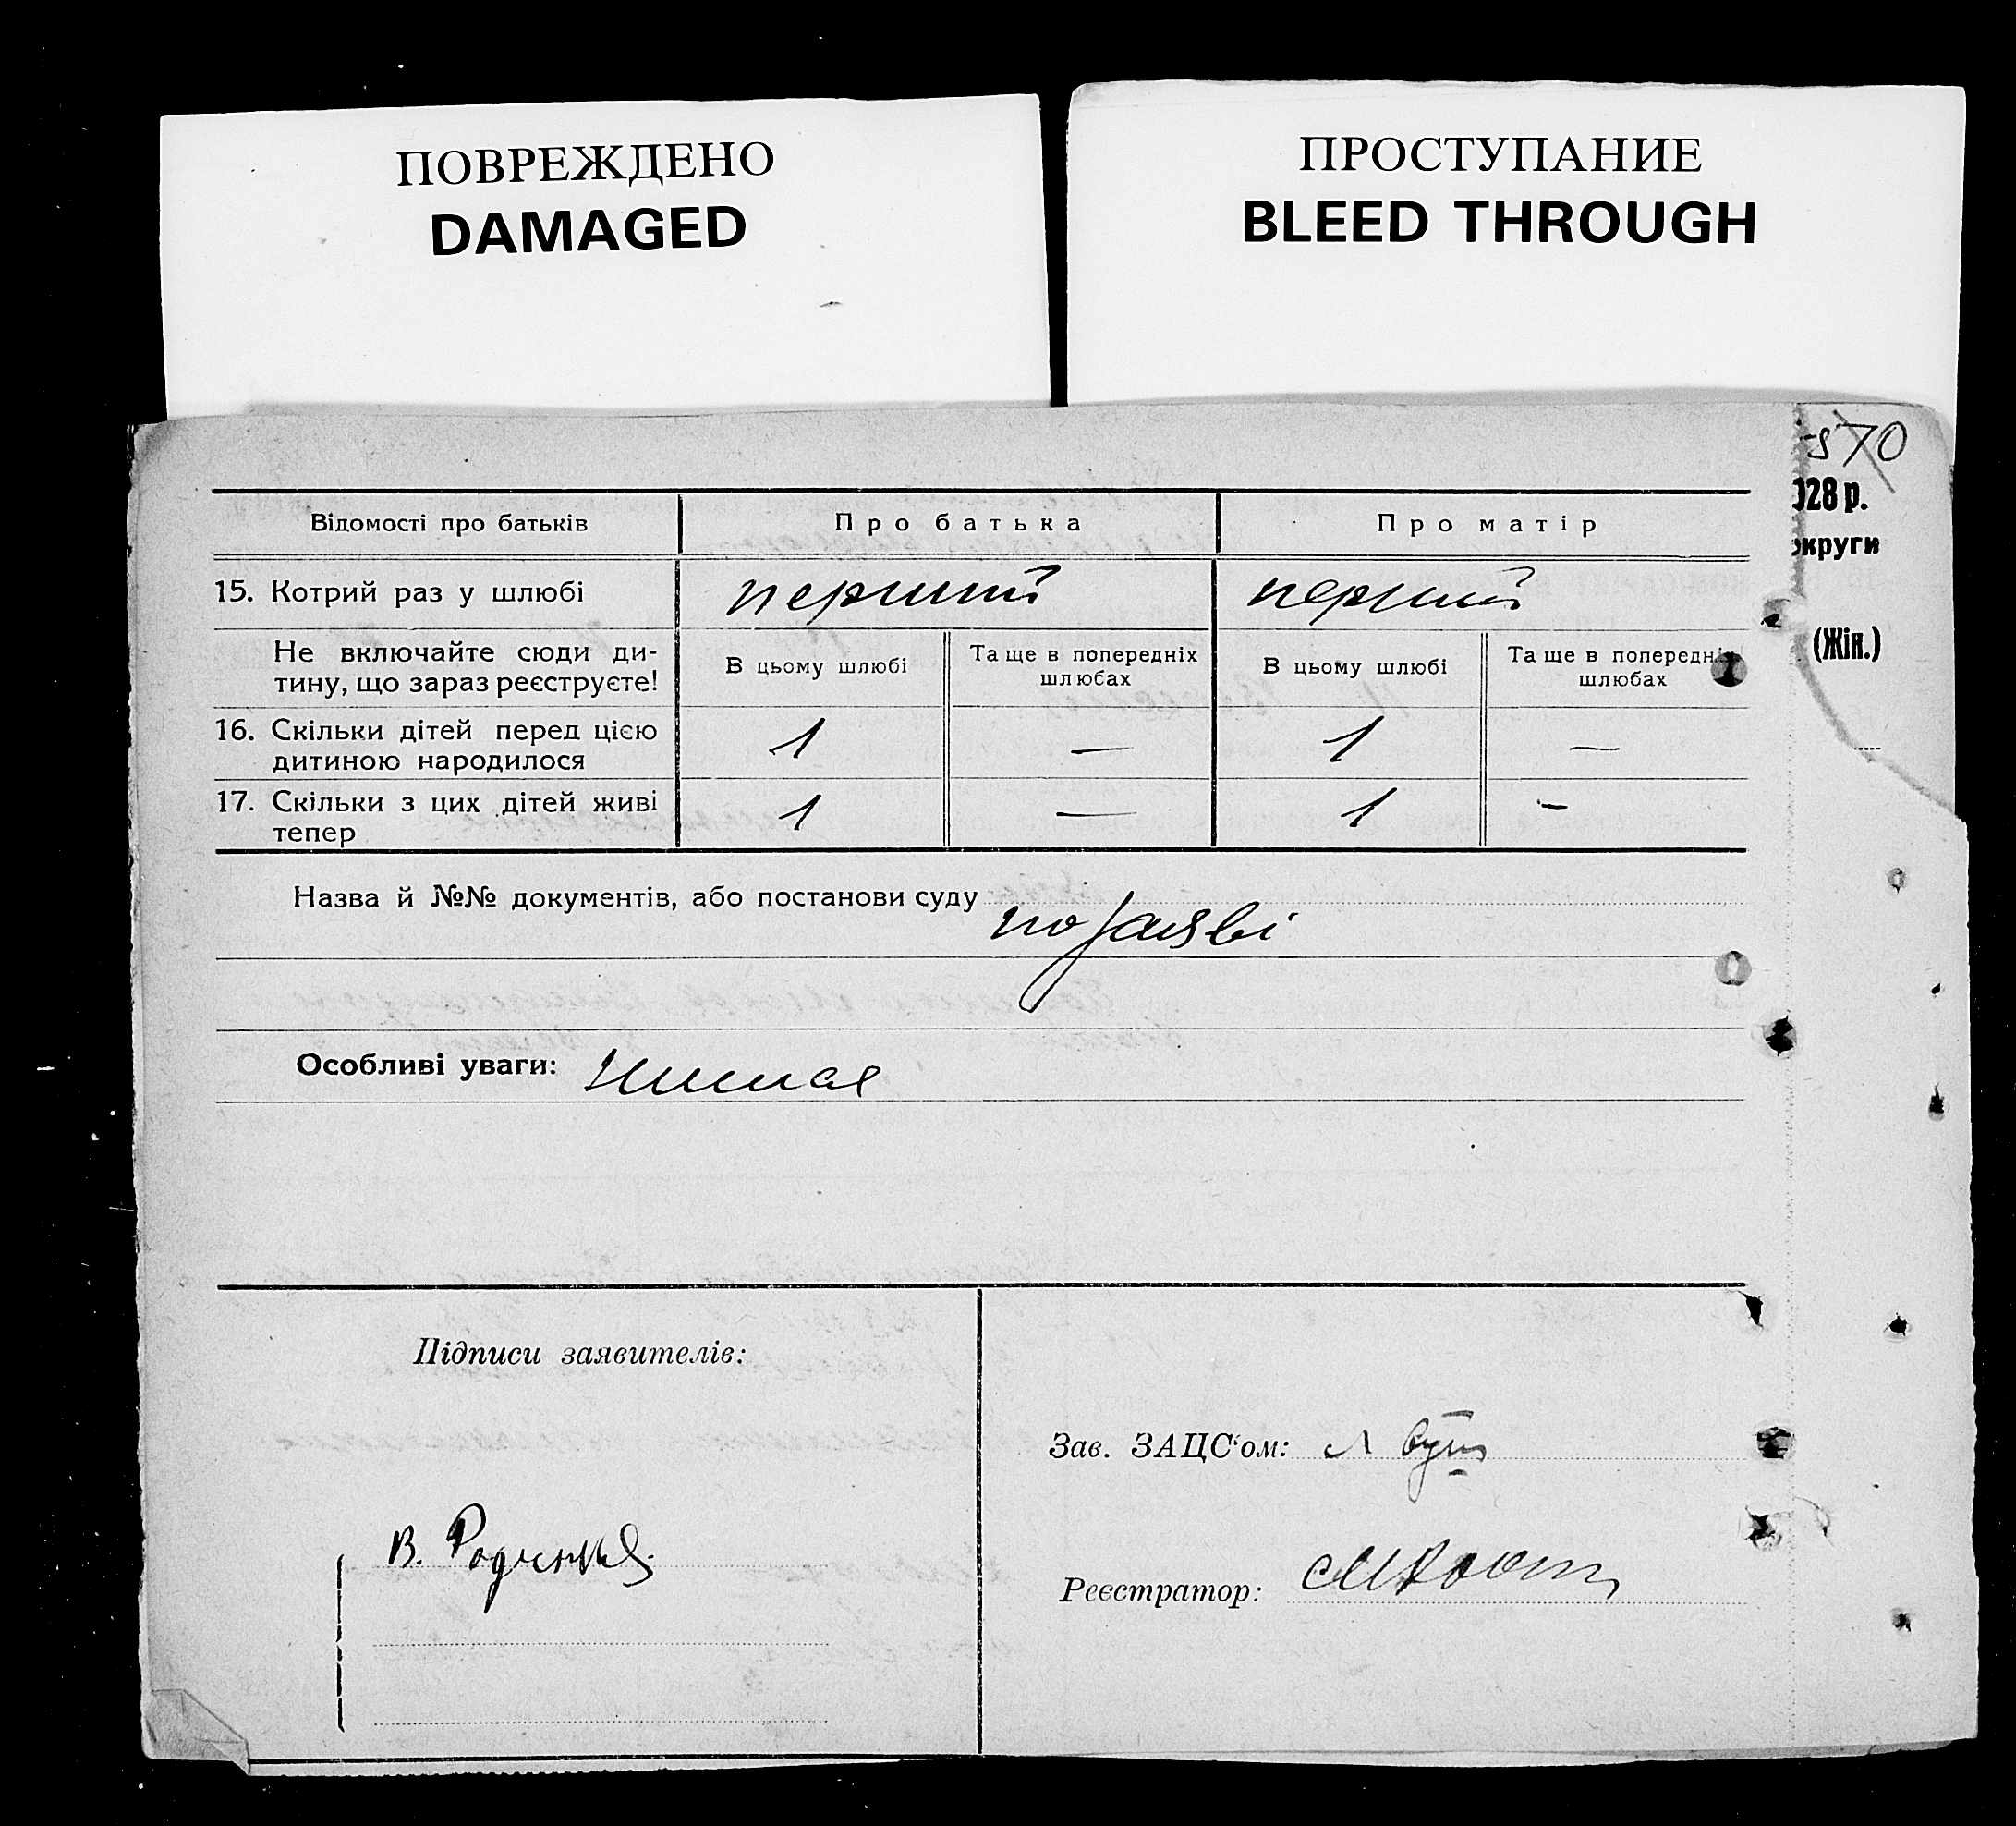 ПОВРЕЖДЕНО
DAMAGED
ПРОСТУПАНИЕ
BLEED THROUGH
570
028 р.
округи
(Жін.)
Відомості про батьків
Про батька
Про матір
15. Котрий раз у шлюбі
перший
перший
Не включайте сюди ди-
тину, що зараз реєструєте!
В цьому шлюбі
Та ще в попередніх
шлюбах
В цьому шлюбі
Та ще в попередніх
шлюбах
16. Скільки дітей перед цією
дитиною народилося
1 — 1 —
17. Скільки з цих дітей живі
тепер
1 — 1 —
Назва й №№ документів, або постанови суду
по заяві
Особливі уваги: Немає
Підписи заявителів:
В.
Зав. ЗАЦС'ом:
Реєстратор: